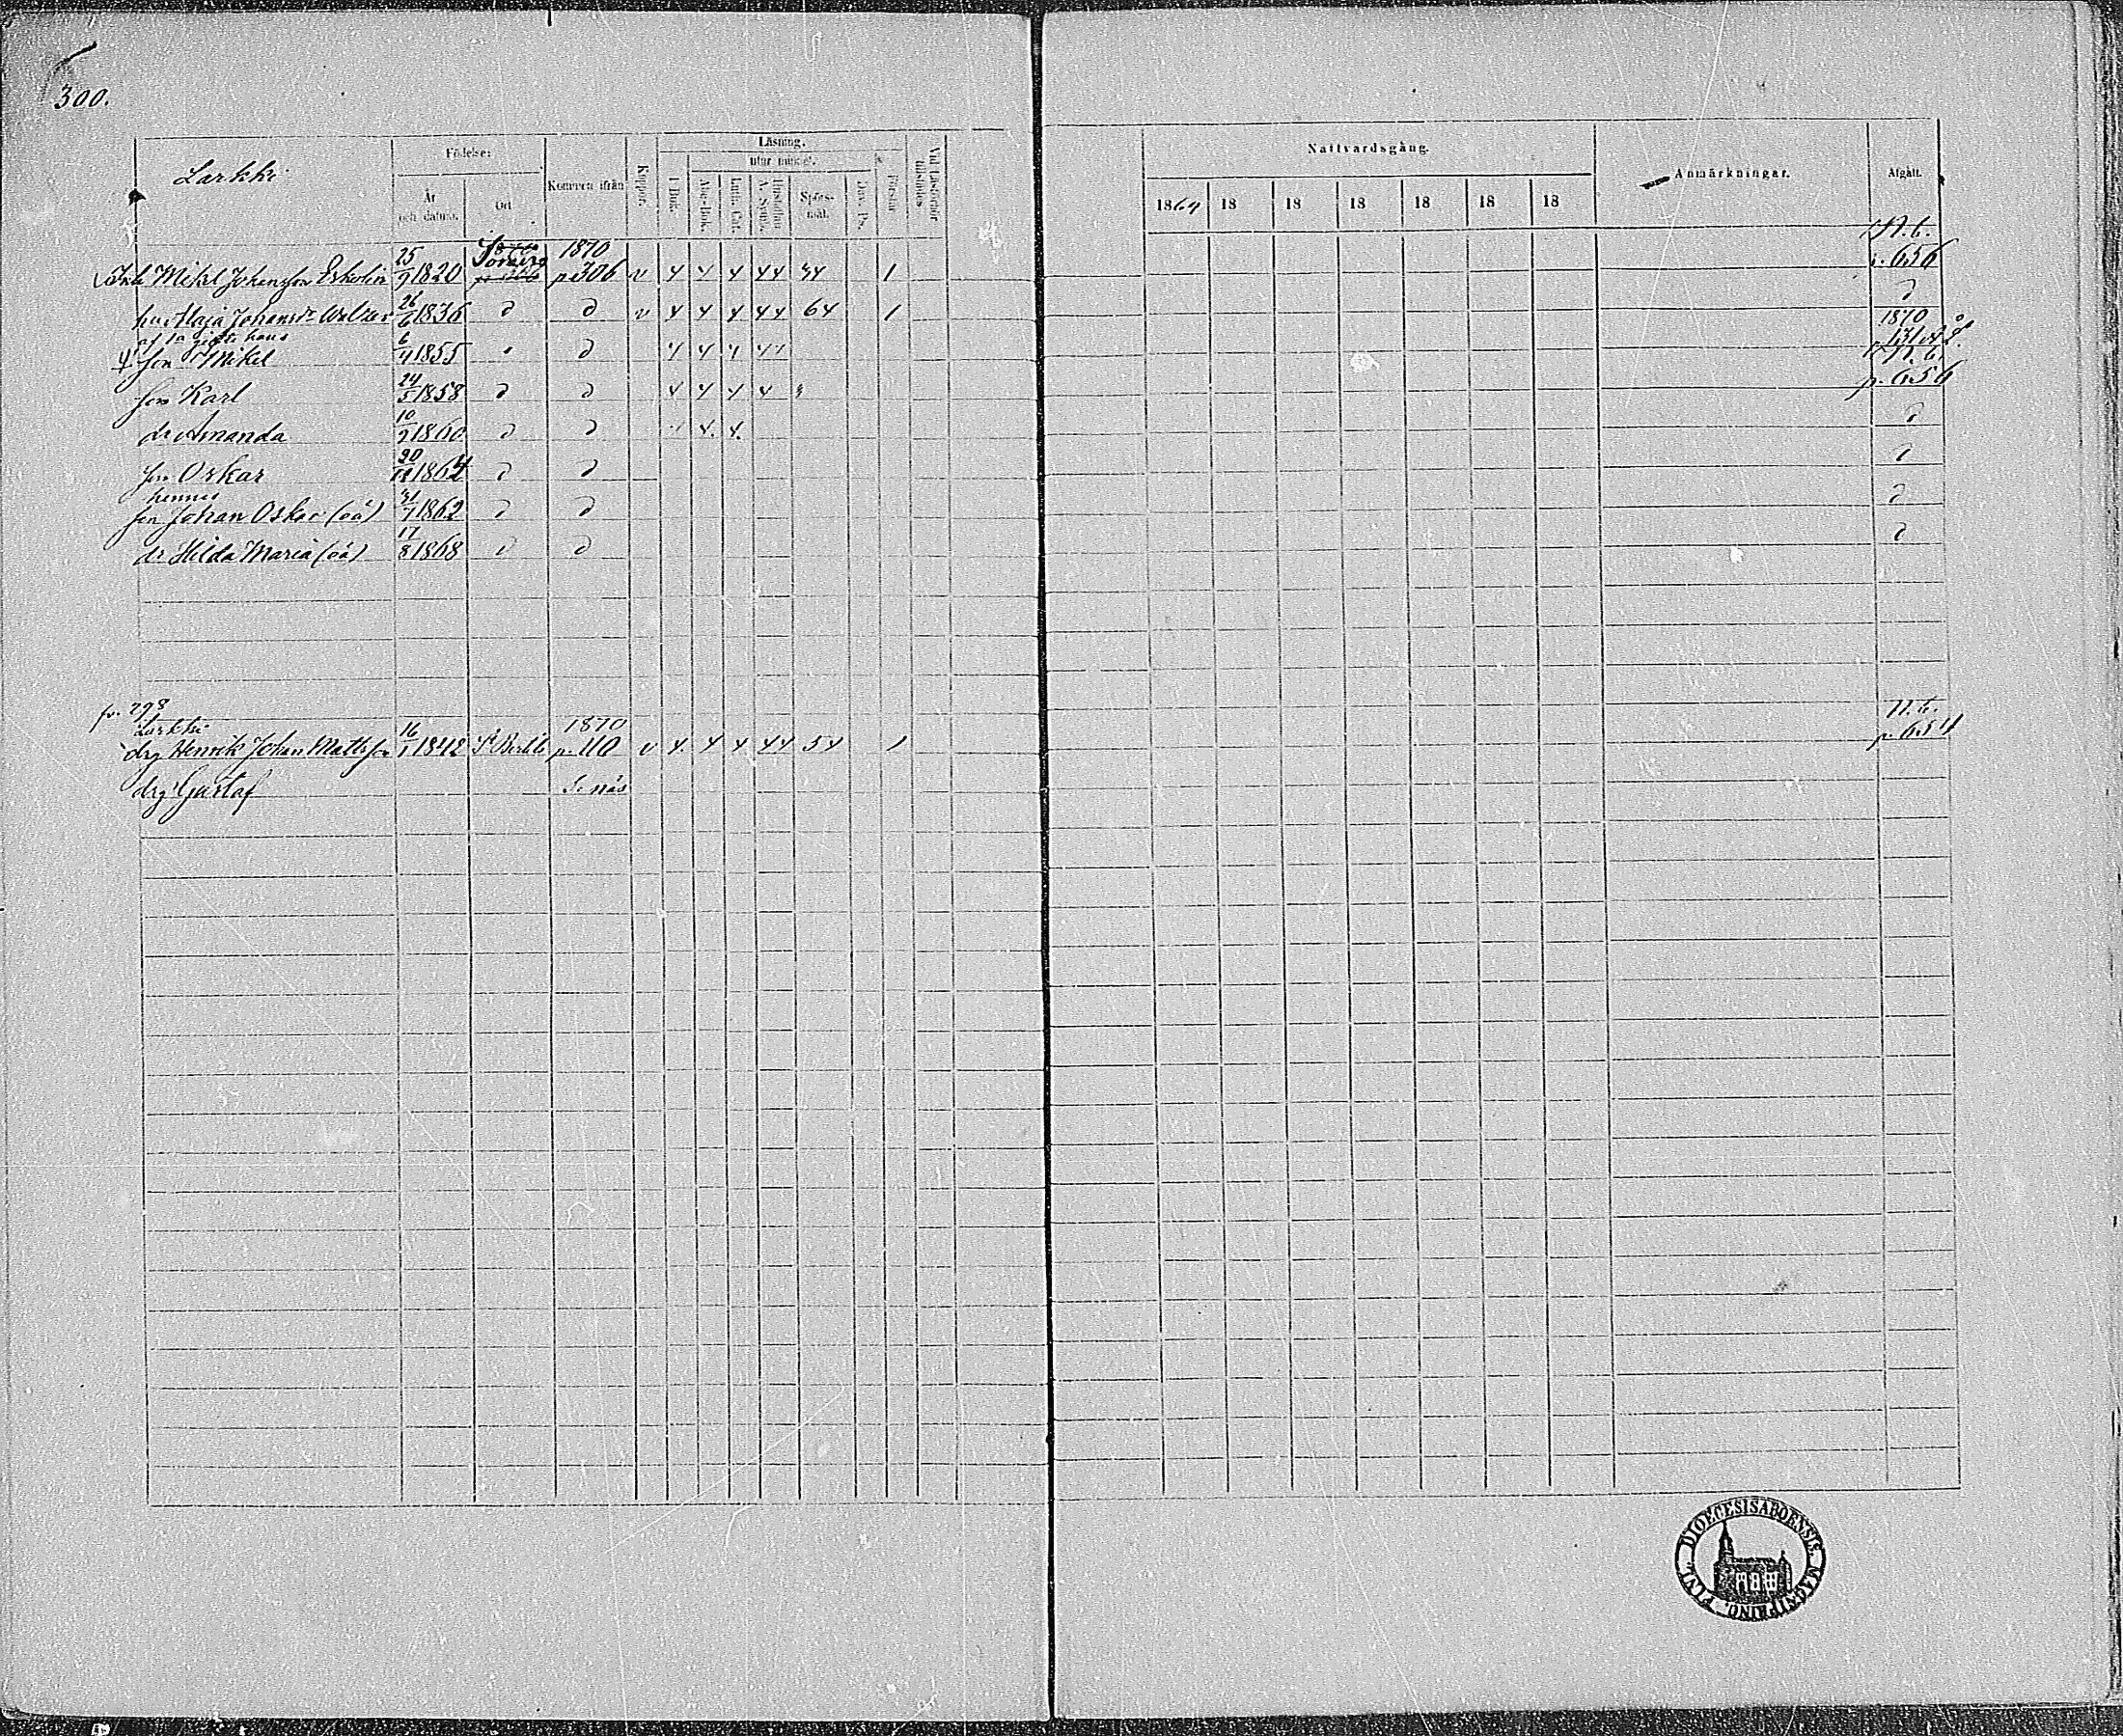 300.
Larkki
Födelse:
År och datum.
Ort
Kommen ifrån
Koppor.
Läsning.
I Bok.
utur minnet.
Abc-Bok.
Luth. Cat.
Hustaflan A. Symb.
Spörsmål.
Dav. Ps.
Förstår
Vid Läseförhör
Nattvardsgång.
1864 18 18 18 18 18 18
Anmärkningar.
Afgått.
Mikel Johansson Eskelin 25/9 1820 1870 p 306 v 4 4 4 44 1 N. b. p. 656
hu Maja Johansdr 26/6 1836 d d v 4 4 4 44 64 1 d
af 1a gifte hans
son Mikel 6/4 1855 d 4 4 4 44 1870
son Karl 24/5 1858 d d 4 4 4 4 N. b. p. 656
dr Amanda 10/2 1860 d d 4. 4. d
son Oskar 1864 d d d
hennes
son Johan Oskar (oä) 31/7 1862 d d d
dr Hilda Maria (oä) 17/8 1868 d d d
fr. 298
Larkki
drg Henrik Johan Mattsson 16/1 1842 1870 p. 110 v 4. 4 4 44 54 1 N. b. p. 654
drg Gustaf
DIOECESIS ABOENSIS. MAGNI PRINC. FINL.